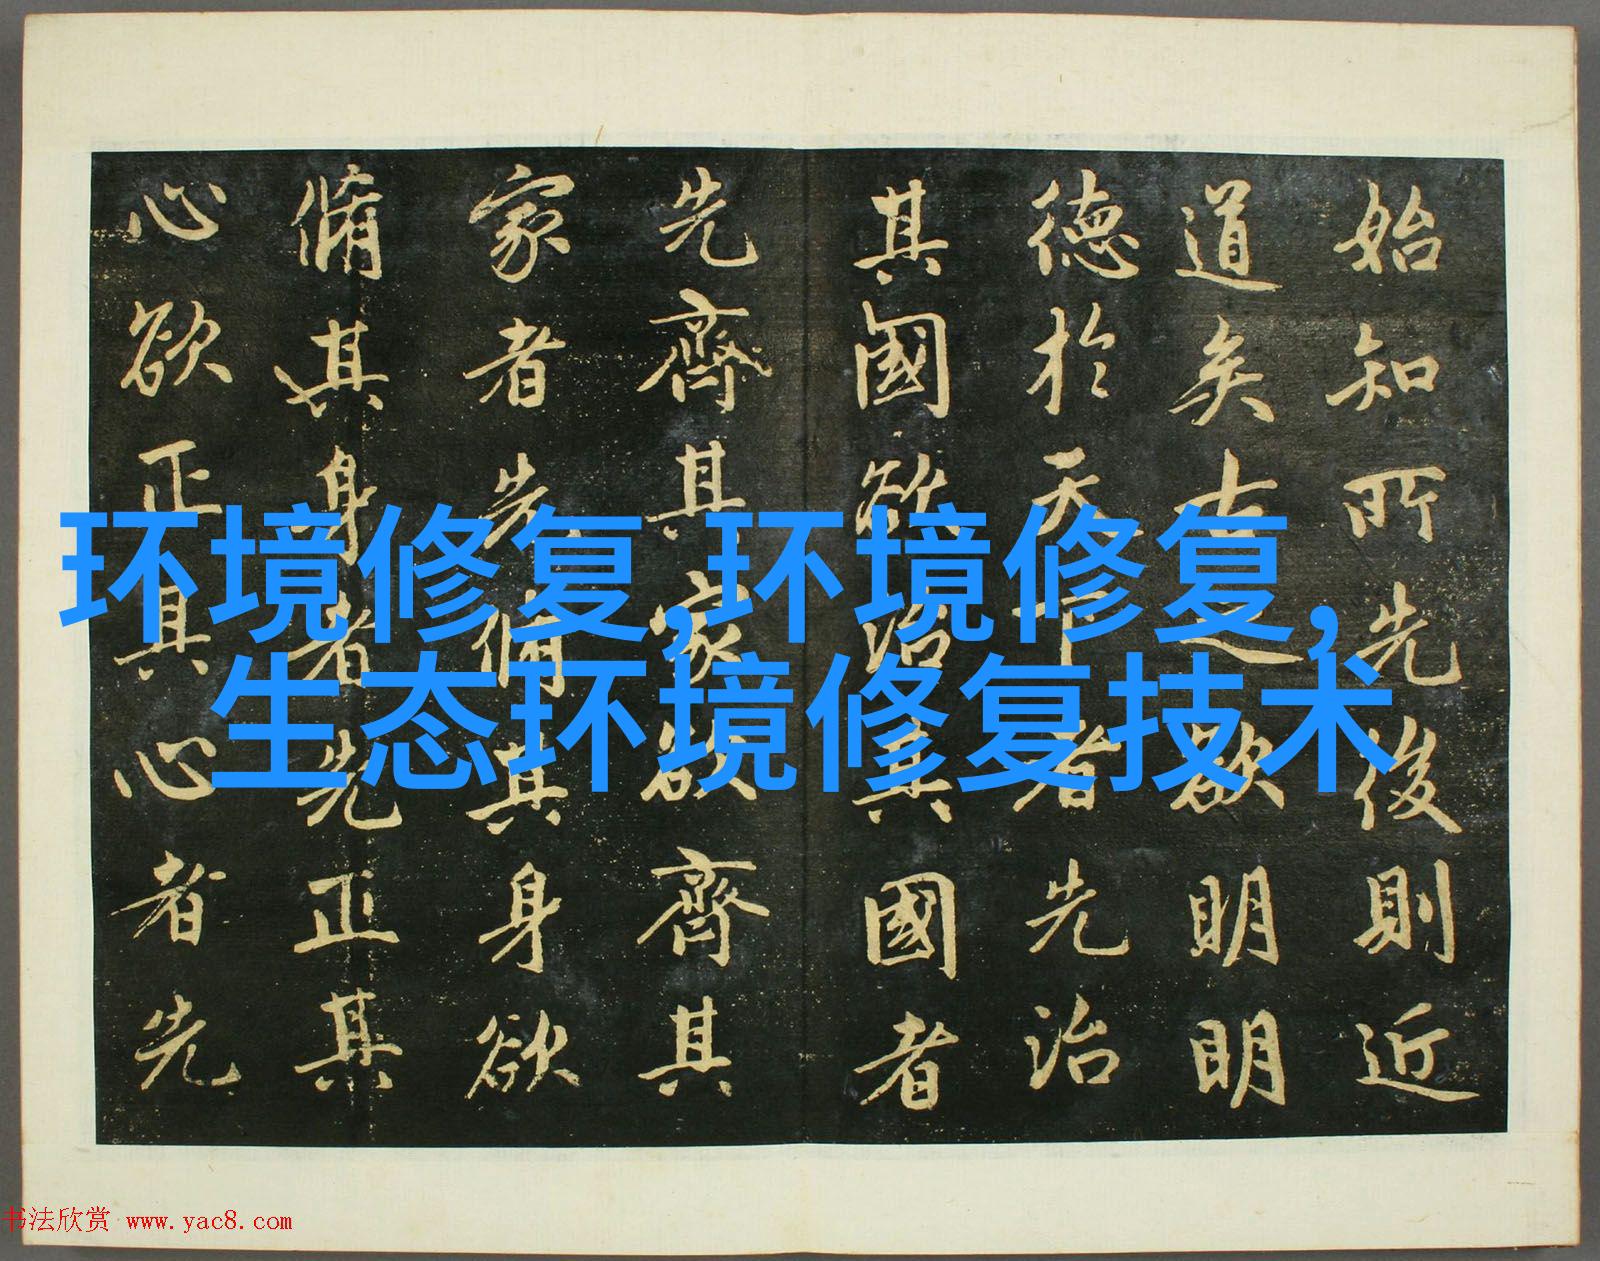 始知所先後則近
道矣古之欲明明
德於天下者先治
其國欲治其國者
先齊其家欲齊其
家者先脩其身欲
脩其身者先正其
心欲正其心者先
环境修复,环境修复,
生态环境修复技术
书法欣赏 www.yac8.com